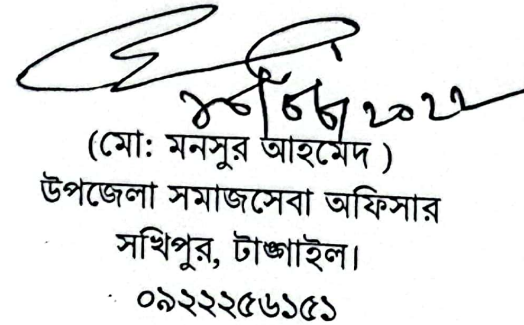 (মো: মনসুর আহমেদ )
উপজেলা সমাজসেবা অফিসার
সখিপুর, টাঙ্গাইল।
০৯২২২৫৬১৫১